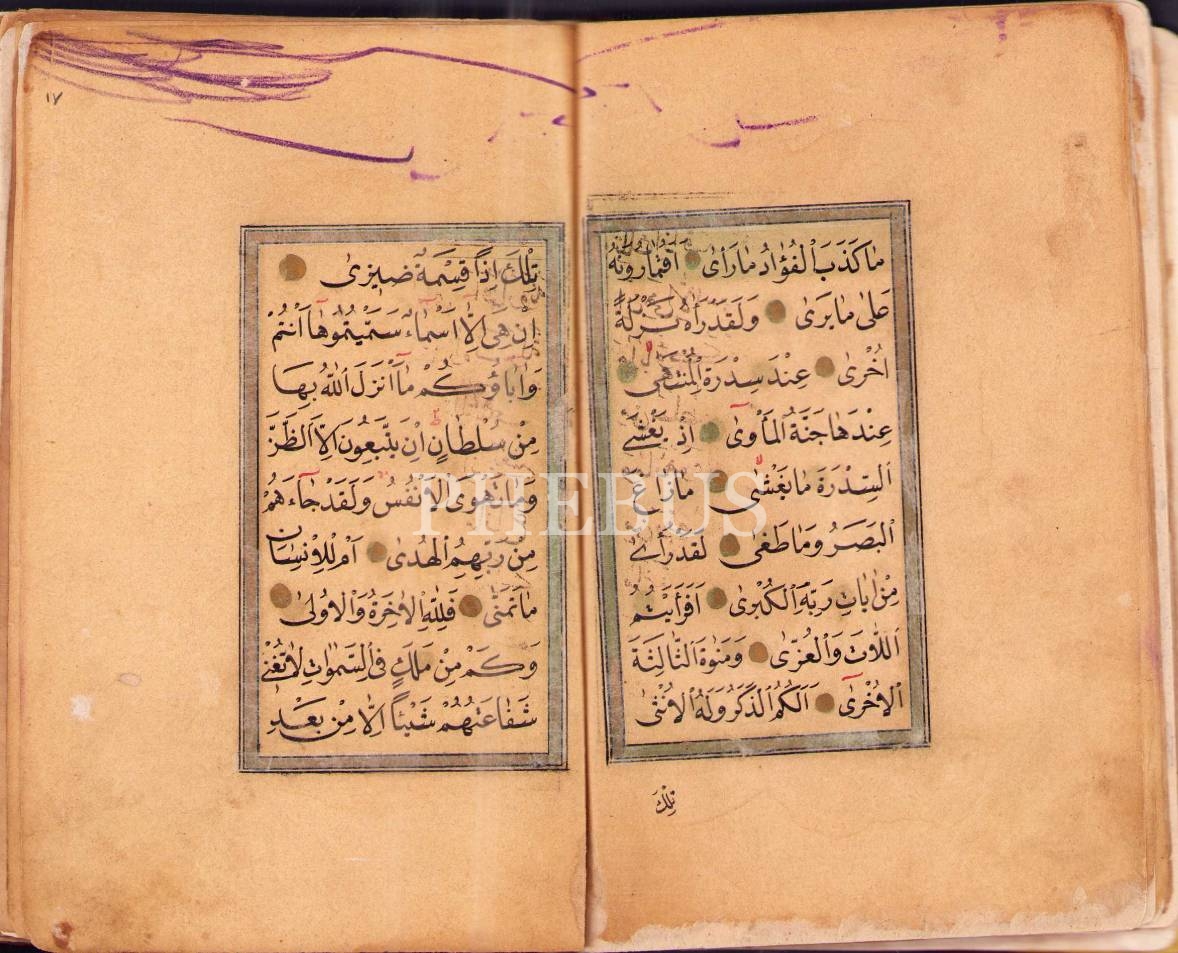 مَا كَذَبَ الْفُؤٰادُ مٰا رَأىٰ اَفَتُمٰارُونَهُ
عَلىٰ مٰا يَرىٰ وَلَقَدْ رَاٰهُ نَزْلَةً
اُخْرىٰ عِنْدَ سِدْرَةِ الْمُنْتَهىٰ
عِنْدَهٰا جَنَّةُ الْمَأْوىٰ اِذْ يَغْشَى
السِّدْرَةَ مٰا يَغْشٰى مٰازٰاغَ
الْبَصَرُ وَمٰا طَغىٰ لَقَدْ رَأىٰ
مِنْ اٰيٰاتِ رَبِّهِ الْكُبْرىٰ اَفَرَأَيْتُمُ
اللّٰاتَ وَالْعُزّىٰ وَمَنٰوةَ الثّٰالِثَةَ
الْاُخْرىٰ اَلَكُمُ الذَّكَرُ وَلَهُ الْاُنْثىٰ
تِلْكَ
١٧
تِلْكَ اِذاً قِسْمَةٌ ضيزىٰ
اِنْ هِىَ اِلّٰا اَسْمٰاءٌ سَمَّيْتُمُوهٰا اَنْتُمْ
وَاٰبٰاؤُكُمْ مٰا اَنْزَلَ اللّٰهُ بِهٰا
مِنْ سُلْطٰانٍ اِنْ يَتَّبِعُونَ اِلَّا الظَّنَّ
وَمٰا تَهْوَى الْاَنْفُسُ وَلَقَدْ جٰاءَهُمْ
مِنْ رَبِّهِمُ الْهُدىٰ اَمْ لِلْاِنْسٰانِ
مٰا تَمَنّٰى فَلِلّٰهِ الْاٰخِرَةُ وَالْاُولىٰ
وَكَمْ مِنْ مَلَكٍ فِى السَّمٰوٰاتِ لٰا تُغْنى
شَفٰاعَتُهُمْ شَيْئاً اِلّٰا مِنْ بَعْدِ
PHEBUS